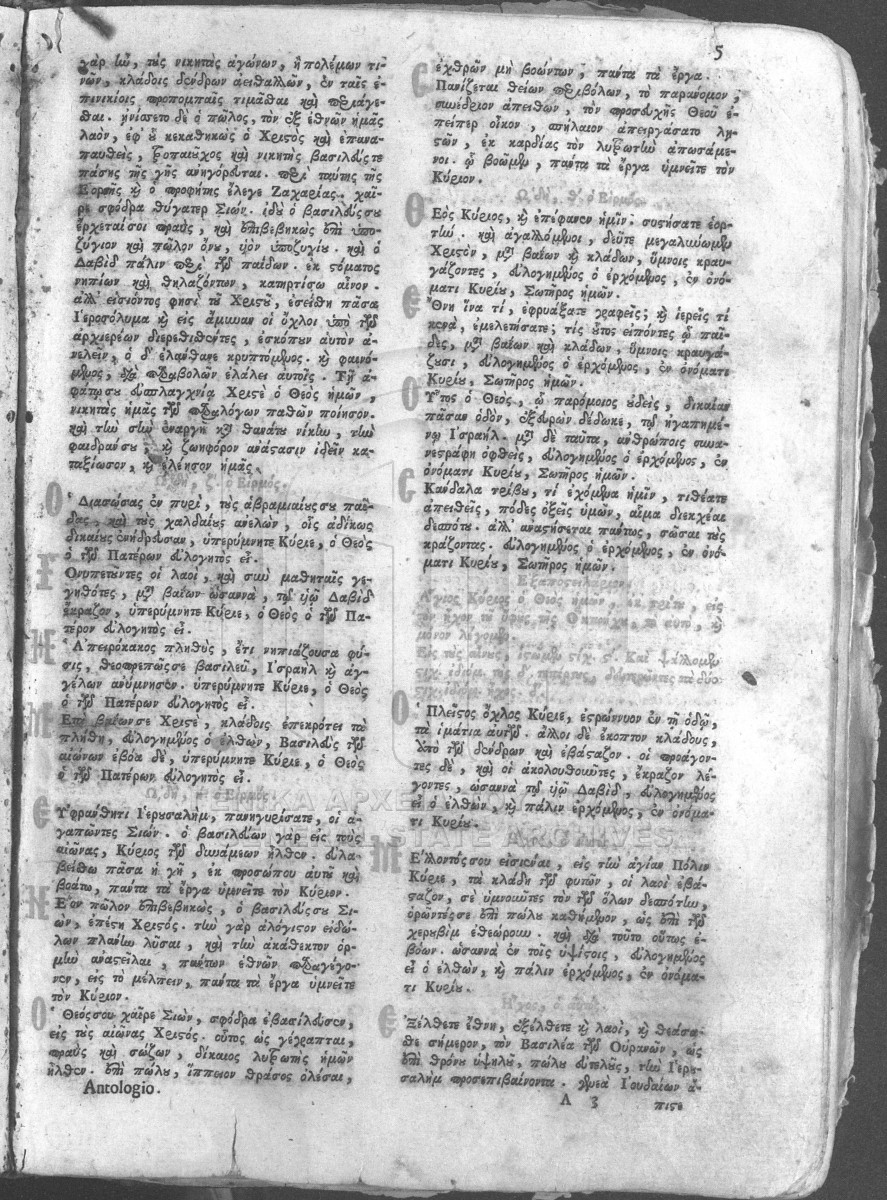 5
γὰρ ἦν, τοὺς νικητὰς ἀγώνων, ἢ πολέμων τι-
νῶν, κλάδοις δένδρων ἀειθαλῶν, ἐν ταῖς ἐ-
πινικίοις προπομπαῖς τιμᾶσθαι καὶ περιάγε-
σθαι. ᾐνίσσετο δὲ ὁ πῶλος, τὸν ἐξ ἐθνῶν ἡμᾶς
λαὸν, ἐφ' ᾧ κεκαθηκὼς ὁ Χριστὸς καὶ ἐπανα-
παυθεὶς, τροπαιοῦχος καὶ νικητὴς βασιλεύς τε
πάσης τῆς γῆς ἀνηγόρευται. περὶ ταύτης τῆς
Ἑορτῆς καὶ ὁ προφήτης ἔλεγε Ζαχαρίας. χαῖ-
ρε σφόδρα θύγατερ Σιών. ἰδοὺ ὁ βασιλεύς σου
ἔρχεταί σοι πραῢς, καὶ ἐπιβεβηκὼς ἐπὶ ὑπο-
ζύγιον καὶ πῶλον ὄνου, υἱὸν ὑποζυγίου. καὶ ὁ
Δαβὶδ πάλιν περὶ τῶν παίδων. ἐκ στόματος
νηπίων καὶ θηλαζόντων, κατηρτίσω αἶνον.
ἀλλ' εἰσιόντος φησὶ τοῦ Χριστοῦ, ἐσείσθη πᾶσα
Ἱεροσόλυμα καὶ εἰς ἄμυναν οἱ ὄχλοι ὑπὸ τῶν
ἀρχιερέων διερεθισθέντες, ἐσκόπουν αὐτὸν ἀ-
νελεῖν, ὁ δ' ἐλάνθανε κρυπτόμενος. καὶ φαινό-
μενος, διὰ παραβολῶν ἐλάλει αὐτοῖς. Τῇ ἀ-
φάτῳ σου εὐσπλαγχνίᾳ Χριστὲ ὁ Θεὸς ἡμῶν,
νικητὰς ἡμᾶς τῶν παραλόγων παθῶν ποίησον.
καὶ τὴν σὴν ἐναργῆ κατὰ θανάτου νίκην, τὴν
φαιδράν σου, καὶ ζωηφόρον ἀνάστασιν ἰδεῖν κα-
ταξίωσον, καὶ ἐλέησον ἡμᾶς.
ᾨδὴ, ζ. ὁ Εἱρμός.
Ὁ Διασώσας ἐν πυρὶ, τοὺς ἀβραμιαίους σου παῖ-
δας, καὶ τοὺς χαλδαίους ἀνελὼν, οἷς ἀδίκως
δικαίους ἐνήδρευσαν, ὑπερύμνητε Κύριε, ὁ Θεὸς
ὁ τῶν Πατέρων εὐλογητὸς εἶ.
Γονυπετοῦντες οἱ λαοὶ, καὶ σὺν μαθηταῖς γε-
γηθότες, μετὰ βαΐων ὡσαννὰ, τῷ υἱῷ Δαβὶδ
ἔκραζον, ὑπερύμνητε Κύριε, ὁ Θεὸς ὁ τῶν Πα-
τέρον εὐλογητὸς εἶ.
Ἡ Ἀπειρόκακος πληθὺς, ἔτι νηπιάζουσα φύ-
σις, θεοπρεπῶς σε βασιλεῦ, Ἰσραὴλ καὶ ἀγ-
γέλων ἀνύμνησεν. ὑπερύμνητε Κύριε, ὁ Θεὸς
ὁ τῶν Πατέρων εὐλογητὸς εἶ.
Μετὰ βαΐων σε Χριστὲ, κλάδοις ἐπεκρότει τὰ
πλήθη, εὐλογημένος ὁ ἐλθὼν, Βασιλεὺς τῶν
αἰώνων ἐβόα δὲ, ὑπερύμνητε Κύριε, ὁ Θεὸς
ὁ τῶν Πατέρων εὐλογητὸς εἶ.
ᾨδὴ, η. ὁ Εἱρμός.
Εὐφράνθητι Ἱερουσαλὴμ, πανηγυρίσατε, οἱ ἀ-
γαπῶντες Σιών. ὁ βασιλεύων γὰρ εἰς τοὺς
αἰῶνας, Κύριος τῶν δυνάμεων ἦλθεν. εὐλα-
βείσθω πᾶσα ἡ γῆ, ἐκ προσώπου αὐτοῦ καὶ
βοάτω, πάντα τὰ ἔργα ὑμνεῖτε τὸν Κύριον.
Νέον πῶλον ἐπιβεβηκὼς, ὁ βασιλεύς σου Σι-
ὼν, ἐπέστη Χριστός. τὴν γὰρ ἀλόγιστον εἰδώ-
λων πλάνην λῦσαι, καὶ τὴν ἀκάθεκτον ὁρ-
μὴν ἀναστεῖλαι, πάντων ἐθνῶν παραγέγο-
νεν, εἰς τὸ μέλπειν, πάντα τὰ ἔργα ὑμνεῖτε
τὸν Κύριον.
Ὁ Θεός σου χαῖρε Σιὼν, σφόδρα ἐβασίλευσεν,
εἰς τοὺς αἰῶνας Χριστός. οὗτος ὡς γέγραπται,
πραῢς καὶ σώζων, δίκαιος λυτρωτὴς ἡμῶν
ἦλθεν. ἐπὶ πώλου, ἵππειον θράσος ὀλέσαι,
Antologio.
ἐχθρῶν μὴ βοώντων, πάντα τὰ ἔργα.
Σκανίζεται θείων περιβόλων, τὸ παράνομον,
συνέδριον ἀπειθῶν, τὸν προσευχῆς Θεοῦ ἐ-
πείπερ οἶκον, σπήλαιον ἀπειργάσατο λῃ-
στῶν, ἐκ καρδίας τὸν λυτρωτὴν ἀπωσάμε-
νοι. ᾧ βοῶμεν, πάντα τὰ ἔργα ὑμνεῖτε τὸν
Κύριον.
ᾨδὴ, θ. ὁ Εἱρμός.
Θεὸς Κύριος, καὶ ἐπέφανεν ἡμῖν. συστήσατε ἑορ-
τήν. καὶ ἀγαλλόμενοι, δεῦτε μεγαλύνωμεν
Χριστὸν, μετὰ βαΐων καὶ κλάδων, ὕμνοις κραυ-
γάζοντες, εὐλογημένος ὁ ἐρχόμενος, ἐν ὀνό-
ματι Κυρίου, Σωτῆρος ἡμῶν.
Ἔθνη ἵνα τί, ἐφρυάξατε γραφεῖς; καὶ ἱερεῖς τί
κενὰ, ἐμελετήσατε; τίς οὗτος εἰπόντες ᾧ παῖ-
δες, μετὰ βαΐων καὶ κλάδων, ὕμνοις κραυγά-
ζουσι, εὐλογημένος ὁ ἐρχόμενος, ἐν ὀνόματι
Κυρίου, Σωτῆρος ἡμῶν.
Οὗτος ὁ Θεὸς, ᾧ παρόμοιος οὐδεὶς, δικαίαν
πᾶσαν ὁδὸν, ἐξευρὼν δέδωκε, τῷ ἠγαπημέ-
νῳ Ἰσραήλ. μετὰ δὲ ταῦτα, ἀνθρώποις συνα-
νεστράφη ὀφθεὶς, εὐλογημένος ὁ ἐρχόμενος, ἐν
ὀνόματι Κυρίου, Σωτῆρος ἡμῶν.
Σκάνδαλα τρίβου, τί ἐχόμενα ἡμῖν, τιθέατε
ἀπειθεῖς, πόδες ὀξεῖς ὑμῶν, αἷμα διεκχέαι
δεσπότου. ἀλλ' ἀναστήσεται πάντως, σῶσαι τοὺς
κράζοντας. εὐλογημένος ὁ ἐρχόμενος, ἐν ὀνό-
ματι Κυρίου, Σωτῆρος ἡμῶν.
Ἐξαποστειλάριον.
Ἅγιος Κύριος ὁ Θεὸς ἡμῶν, ἐκ τρίτου, εἰς
τὸν ἦχον τῆς Ὀκτωήχου, καὶ
μόνον λέγομεν.
Εἰς τοὺς αἴνους, ἱστῶμεν στίχ. ς. Καὶ ψάλλομεν
Ὁ Πλεῖστος ὄχλος Κύριε, ἐστρώννυον ἐν τῇ ὁδῷ,
τὰ ἱμάτια αὐτῶν. ἄλλοι δὲ ἔκοπτον κλάδους,
ἀπὸ τῶν δένδρων καὶ ἐβάσταζον. οἱ προάγον-
τες δὲ, καὶ οἱ ἀκολουθοῦντες, ἔκραζον λέ-
γοντες, ὡσαννὰ τῷ υἱῷ Δαβὶδ, εὐλογημένος
εἶ ὁ ἐλθὼν, καὶ πάλιν ἐρχόμενος, ἐν ὀνόμα-
τι Κυρίου.
Μέλλοντός σου εἰσιέναι, εἰς τὴν ἁγίαν Πόλιν
Κύριε, τὰ κλάδη τῶν φυτῶν, οἱ λαοὶ ἐβά-
σταζον, σὲ ὑμνοῦντες τὸν τῶν ὅλων δεσπότην,
ὁρῶντές σε ἐπὶ πώλου καθήμενον, ὡς ἐπὶ τῶν
χερουβὶμ ἐθεώρουν. καὶ διὰ τοῦτο οὕτως ἐ-
βόων. ὡσαννὰ ἐν τοῖς ὑψίστοις, εὐλογημένος
εἶ ὁ ἐλθὼν, καὶ πάλιν ἐρχόμενος, ἐν ὀνόμα-
τι Κυρίου.
Ἦχος, ὁ αὐτός.
Ἐξέλθετε ἔθνη, ἐξέλθετε καὶ λαοὶ, καὶ θεάσα-
σθε σήμερον, τὸν Βασιλέα τῶν Οὐρανῶν, ὡς
ἐπὶ θρόνου ὑψηλοῦ, πώλου εὐτελοῦς, τὴν Ἱερου-
σαλὴμ προσεπιβαίνοντα. γενεὰ Ἰουδαίων ἄ-
Λ 3 πιστε
ΓΕΝΙΚΑ ΑΡΧΕΙΑ
STATE ARCHIVES